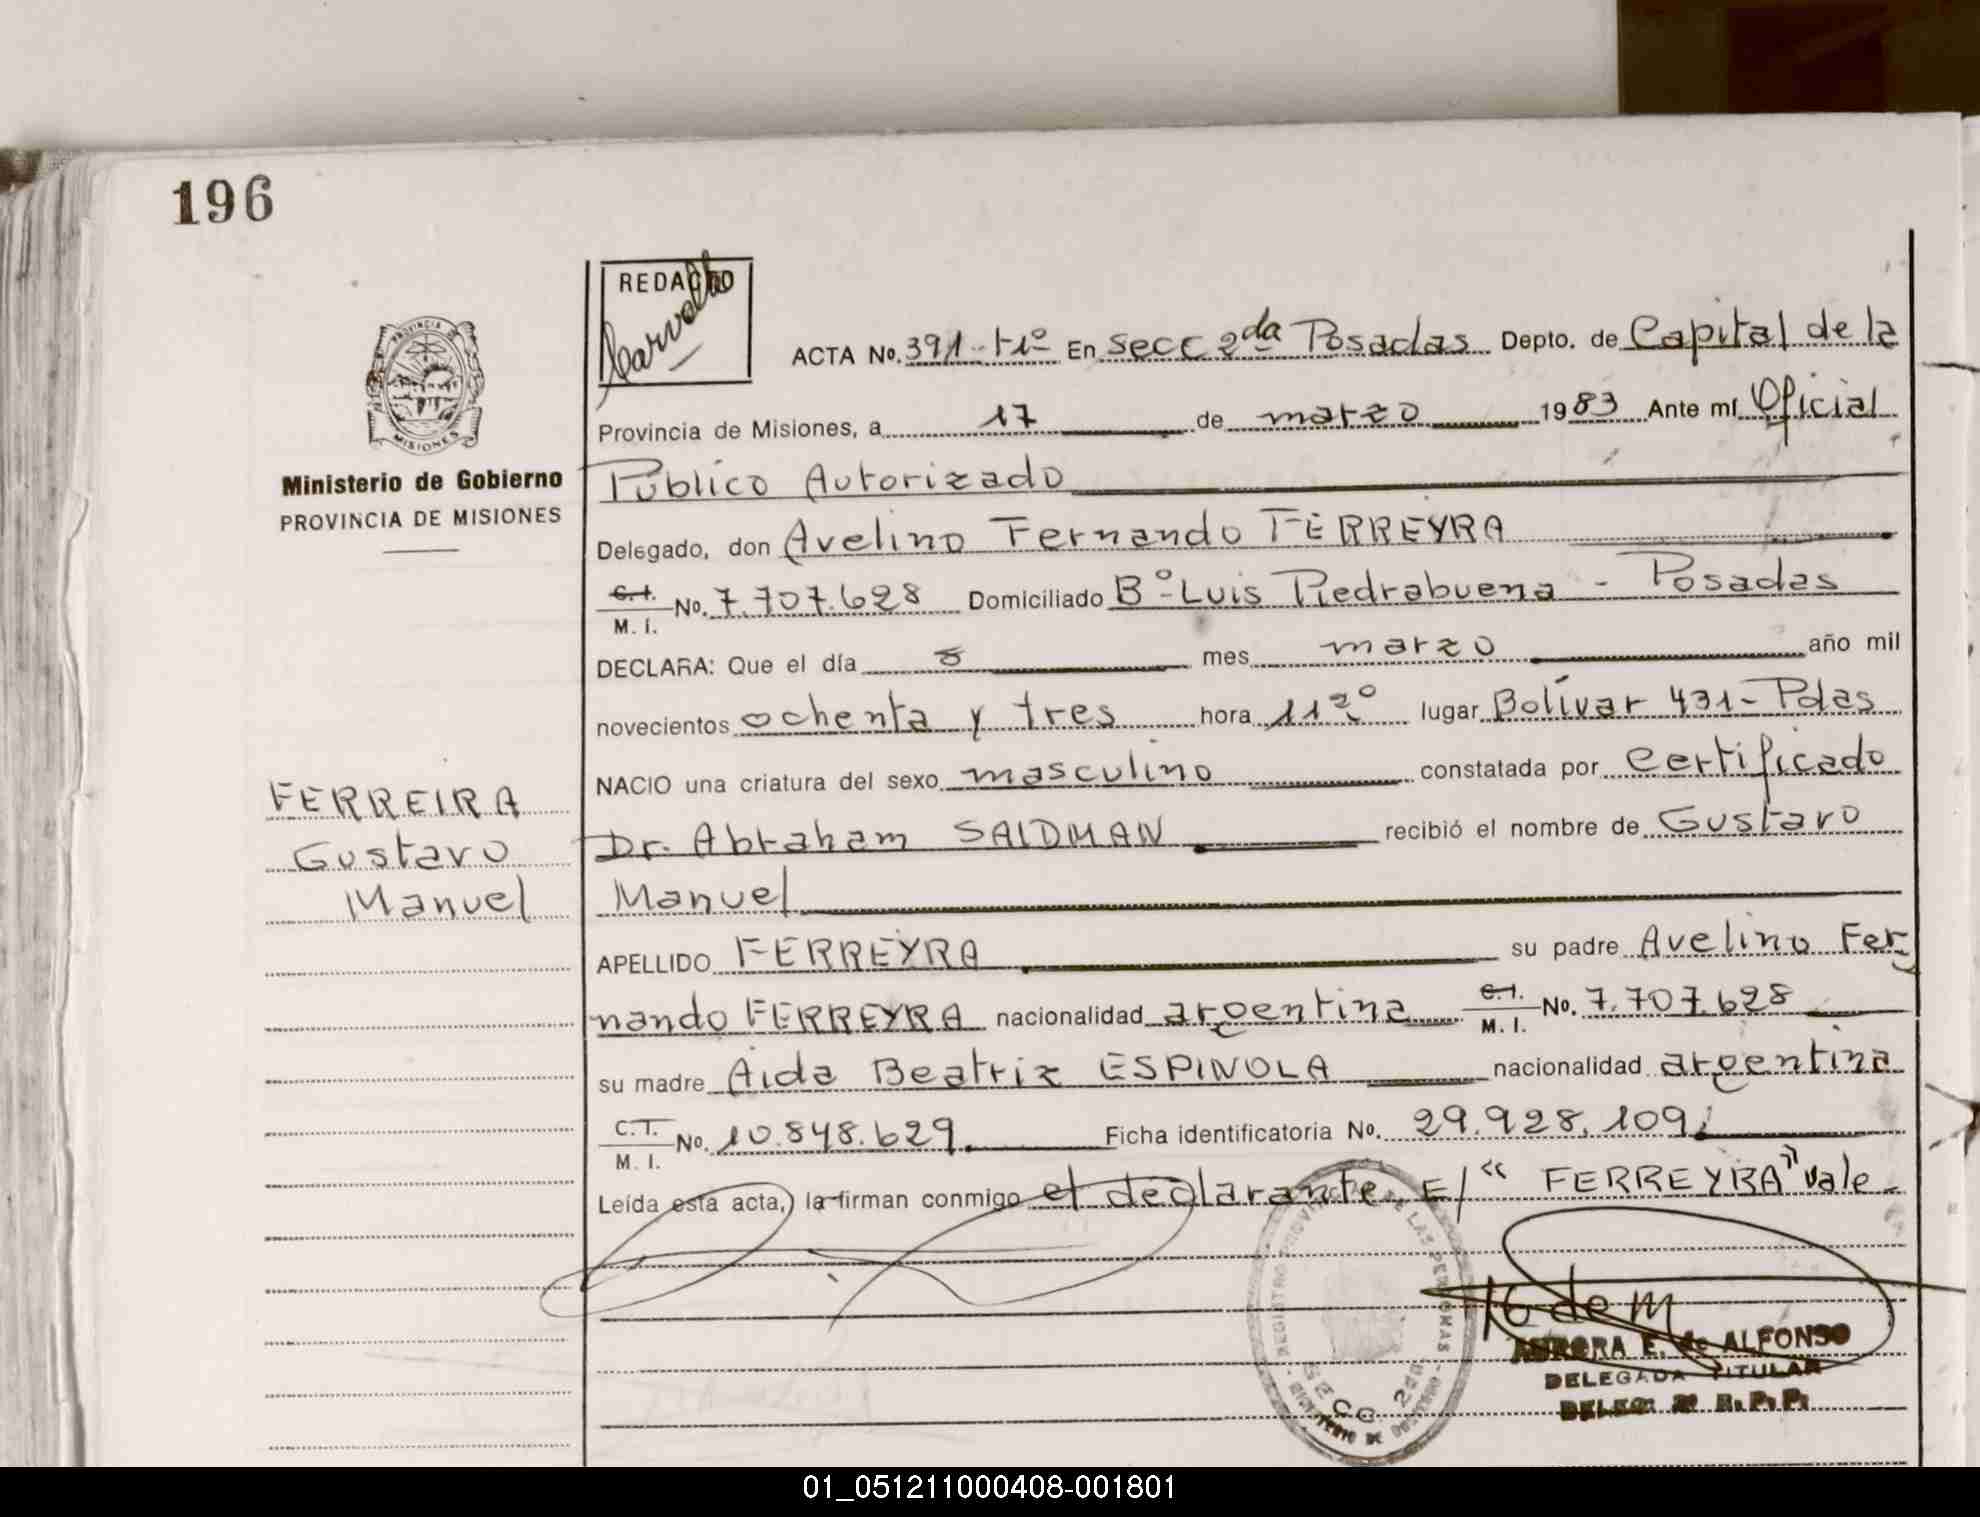 196
REDACTO
Carvalho
ACTA No. 391-t1º En Secc 2da Posadas Depto. de Capital de la
Provincia de Misiones, a 17 de marzo 1983 Ante mí Oficial
PROVINCIA
MISIONES
Ministerio de Gobierno
PROVINCIA DE MISIONES
Público Autorizado
Delegado, don Avelino Fernando FERREYRA
C.I. M.I. No. 7.707.628 Domiciliado Bº Luis Piedrabuena - Posadas
DECLARA: Que el día 8 mes marzo año mil
novecientos ochenta y tres hora 11²⁰ lugar Bolívar 431-Pdas
NACIO una criatura del sexo masculino constatada por certificado
Dr. Abraham SAIDMAN recibió el nombre de Gustavo
Manuel
FERREIRA
Gustavo
Manuel
APELLIDO FERREYRA su padre Avelino Fer-
nando FERREYRA nacionalidad argentina C.I. M.I. No. 7.707.628
su madre Aida Beatriz ESPINOLA nacionalidad argentina
C.I. M.I. No. 10.848.629. Ficha identificatoria No. 29.928.109.
Leída esta acta, la firman conmigo el declarante. E/ "FERREYRA" vale-
REGISTRO PROVINCIAL DE LAS PERSONAS - MINISTERIO DE GOBIERNO -
SECC. 2DA
AURORA E. de ALFONSO
DELEGADA TITULAR
DELEG. 2ª R.P.P.
01_051211000408-001801